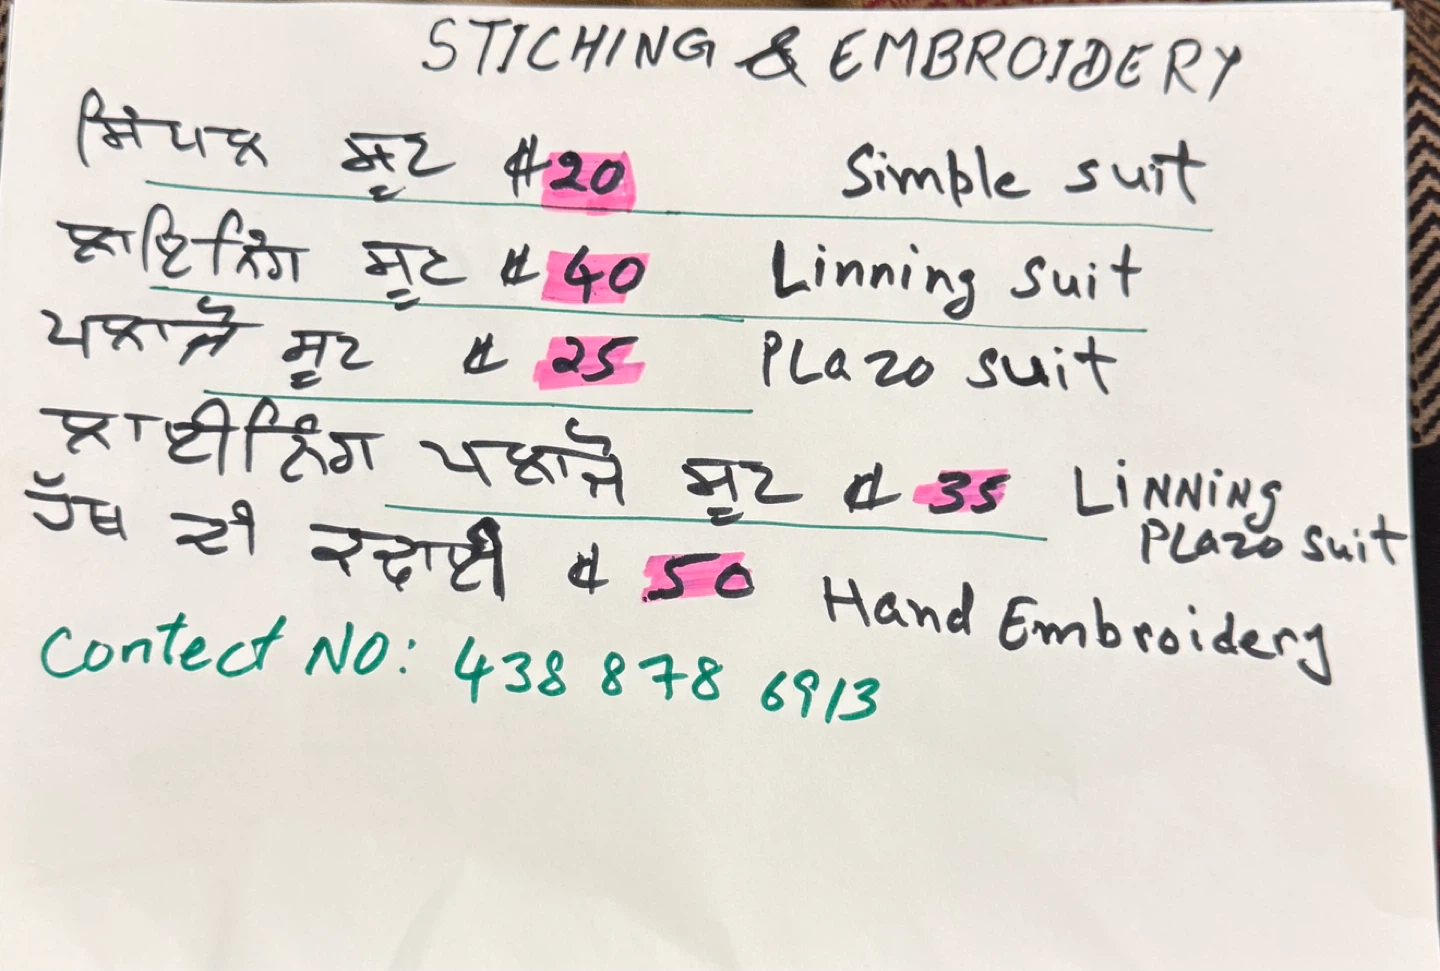 STICHING & EMBROIDERY
ਸਿੰਪਲ ਸੂਟ $20 Simple suit
ਲਾਇਨਿੰਗ ਸੂਟ $40 Linning suit
ਪਲਾਜੋ ਸੂਟ $25 PLazo suit
ਲਾਈਨਿੰਗ ਪਲਾਜੋ ਸੂਟ $35 LiNNiNg PLazo suit
ਹੱਥ ਦੀ ਕਢਾਈ $50 Hand Embroidery
Contect NO: 438 878 6913